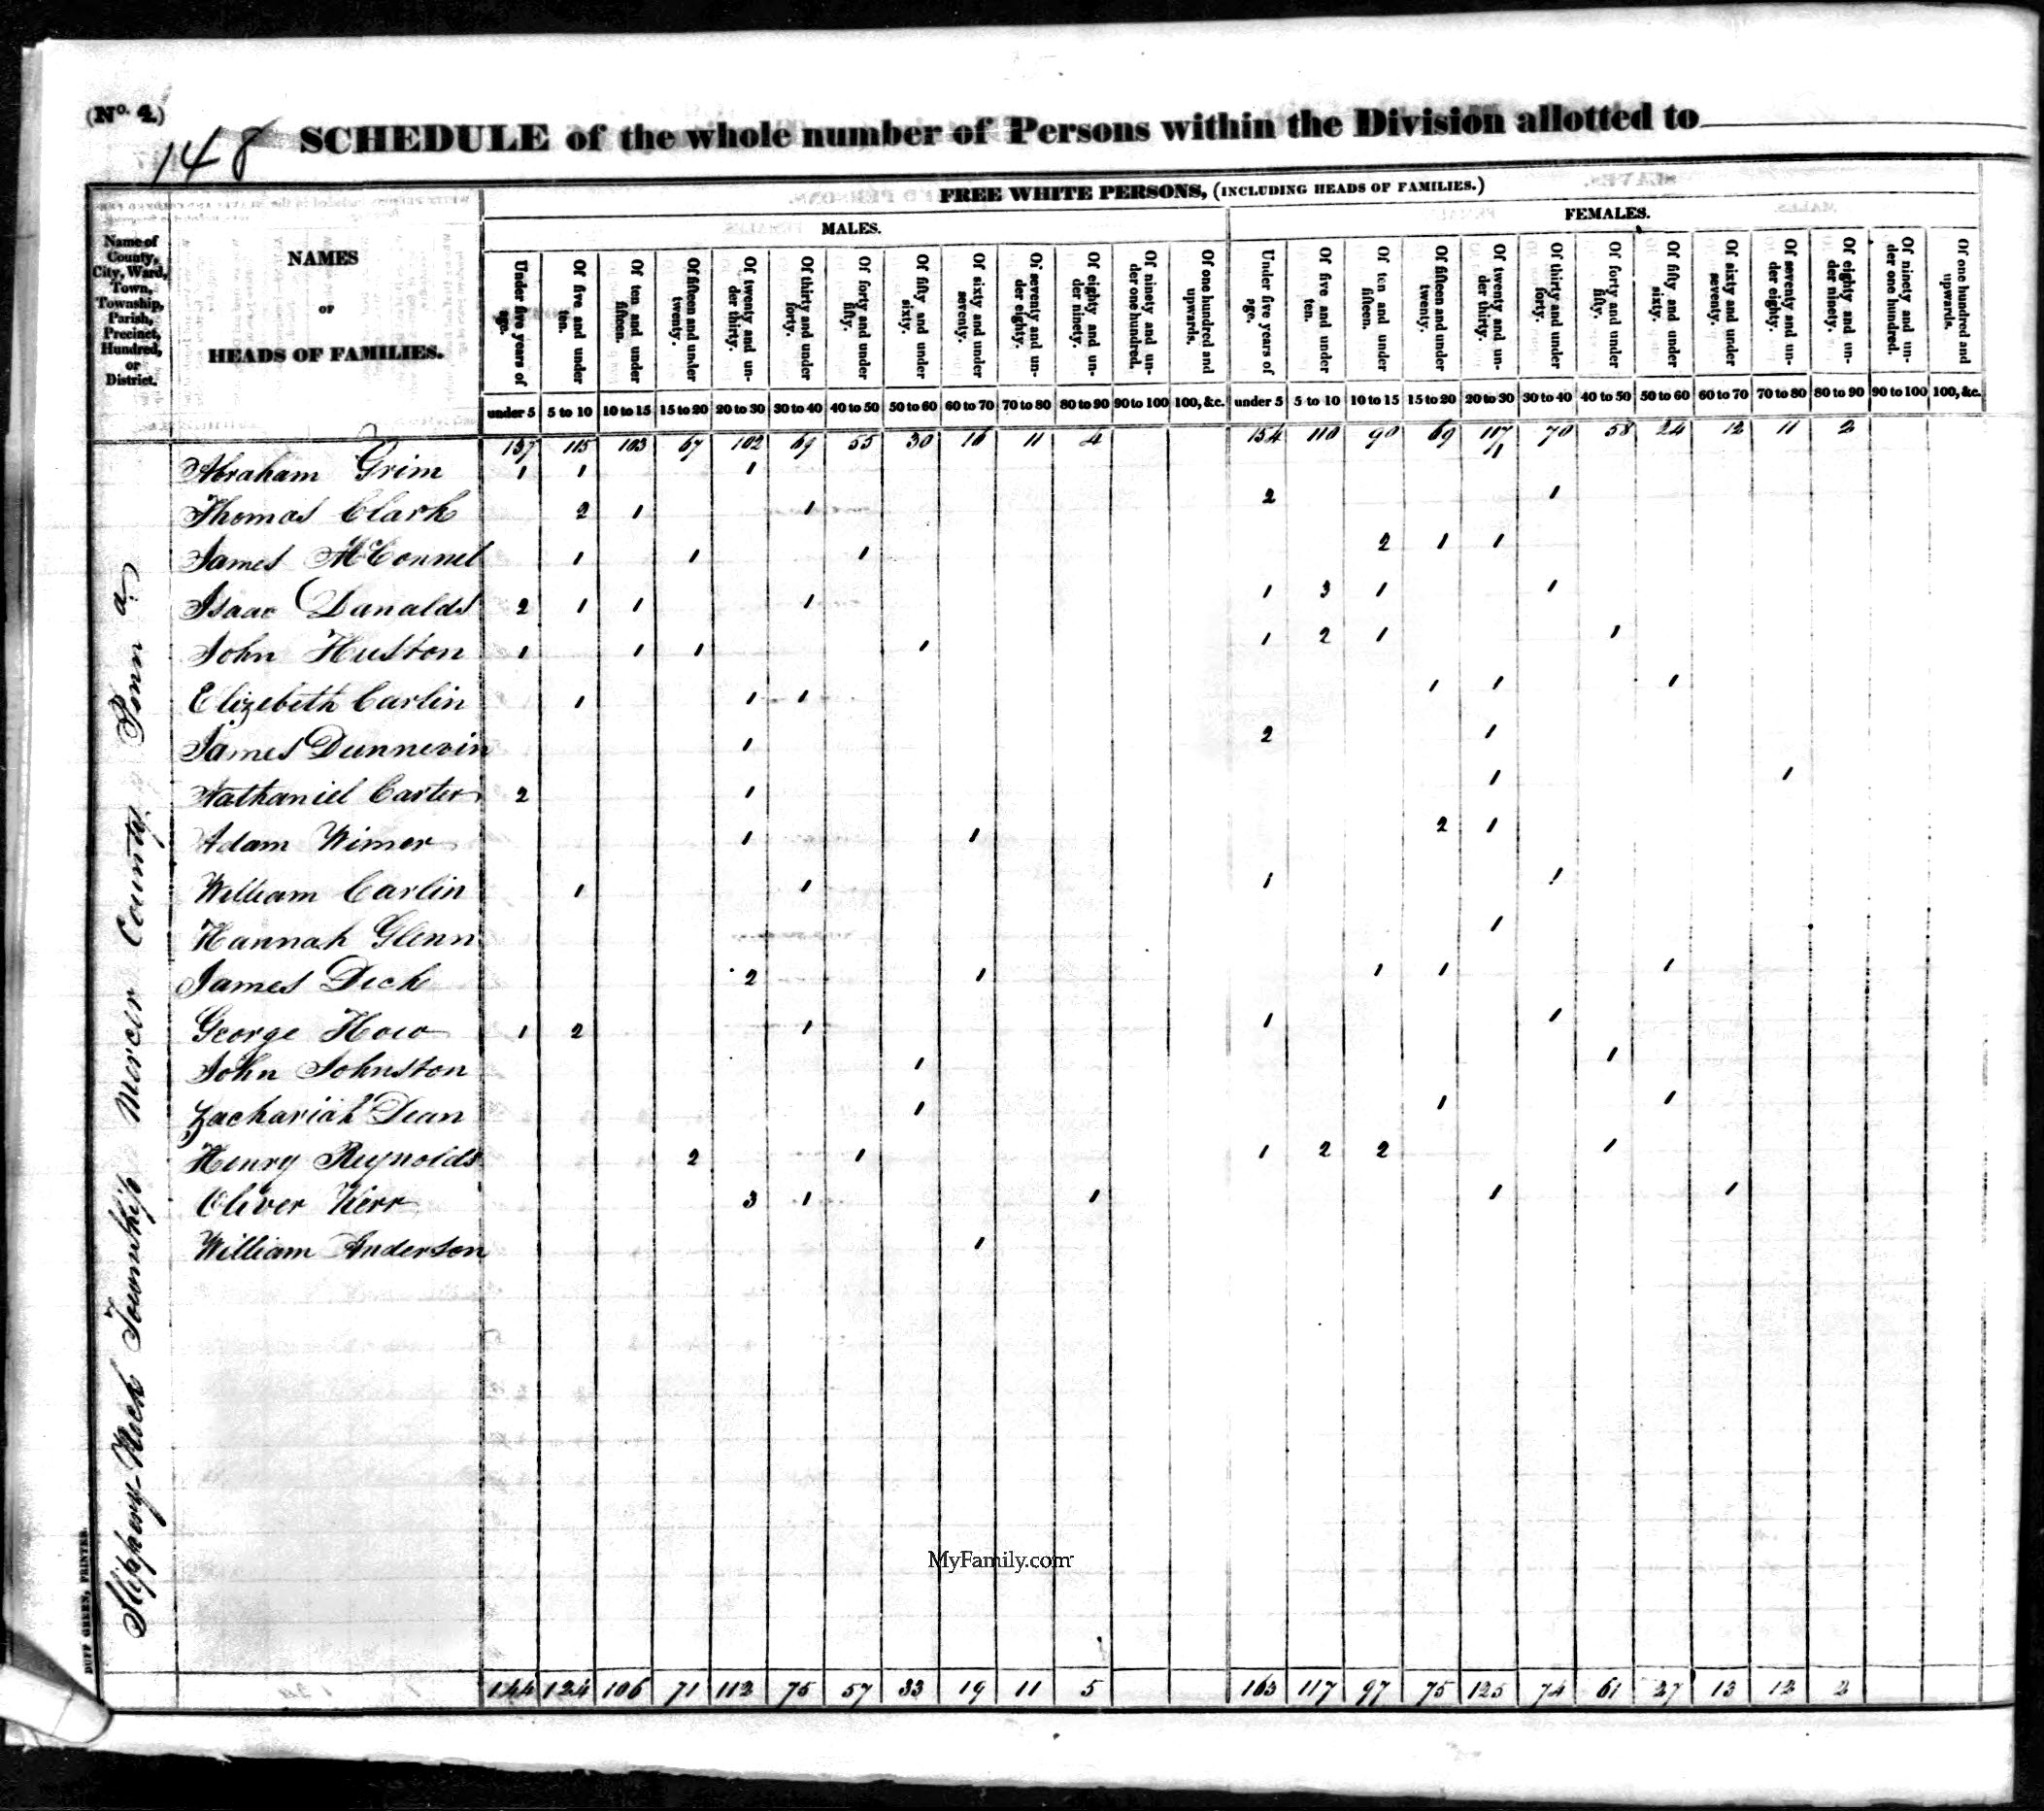 (No. 4.)
148
SCHEDULE of the whole number of Persons within the Division allotted to
FREE WHITE PERSONS, (INCLUDING HEADS OF FAMILIES.)
MALES.
FEMALES.
Name of County, City, Ward, Town, Township, Parish, Precinct, Hundred, or District.
NAMES
OF
HEADS OF FAMILIES.
Under five years of age.
Of five and under ten.
Of ten and under fifteen.
Of fifteen and under twenty.
Of twenty and under thirty.
Of thirty and under forty.
Of forty and under fifty.
Of fifty and under sixty.
Of sixty and under seventy.
Of seventy and under eighty.
Of eighty and under ninety.
Of ninety and under one hundred.
Of one hundred and upwards.
Under five years of age.
Of five and under ten.
Of ten and under fifteen.
Of fifteen and under twenty.
Of twenty and under thirty.
Of thirty and under forty.
Of forty and under fifty.
Of fifty and under sixty.
Of sixty and under seventy.
Of seventy and under eighty.
Of eighty and under ninety.
Of ninety and under one hundred.
Of one hundred and upwards.
under 5 5 to 10 10 to 15 15 to 20 20 to 30 30 to 40 40 to 50 50 to 60 60 to 70 70 to 80 80 to 90 90 to 100 100, &c. under 5 5 to 10 10 to 15 15 to 20 20 to 30 30 to 40 40 to 50 50 to 60 60 to 70 70 to 80 80 to 90 90 to 100 100, &c.
137 115 103 67 102 69 55 30 16 11 4 154 110 90 69 117 70 58 24 12 11 2
Abraham Grim 1 1 1 1
Thomas Clark 2 1 1 2 1
James McConnel 1 1 1 2 1 1
Isaac Danalds 2 1 1 1 1 3 1 1
John Huston 1 1 1 1 1 2 1 1
Elizebeth Carlin 1 1 1 1 1 1
James Dunnevin 1 2 1
Nathaniel Carter 2 1 1 1
Adam Wimer 1 1 2 1
William Carlin 1 1 1 1
Hannah Glenn 1
James Dick 2 1 1 1 1
George How 1 2 1 1 1
John Johnston 1 1
Zachariah Dean 1 1 1
Henry Reynolds 2 1 1 2 2 1
Oliver Kerr 3 1 1 1 1
William Anderson 1
Slippery Rock Township Mercer County Penn a
MyFamily.com
DUFF GREEN, PRINTER.
144 124 106 71 112 75 57 33 19 11 5 163 117 97 75 125 74 61 27 13 12 2